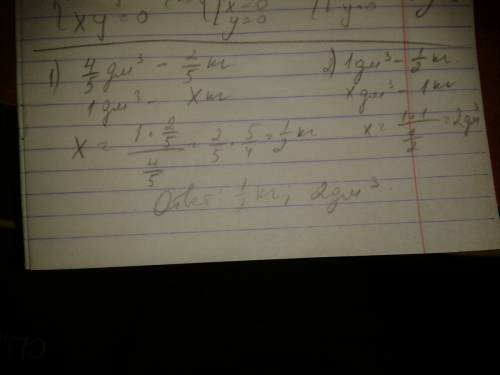 xy = 0
{ x=0
y=0
y=0
1) 4/5 дм³ - 2/5 кг
1 дм³ - x кг
x = (1 · 2/5) / (4/5) = 2/5 · 5/4 = 1/2 кг
2) 1 дм³ - 1/2 кг
x дм³ - 1 кг
x = (1·1) / (1/2) = 2 дм³
Ответ: 1/2 кг; 2 дм³.